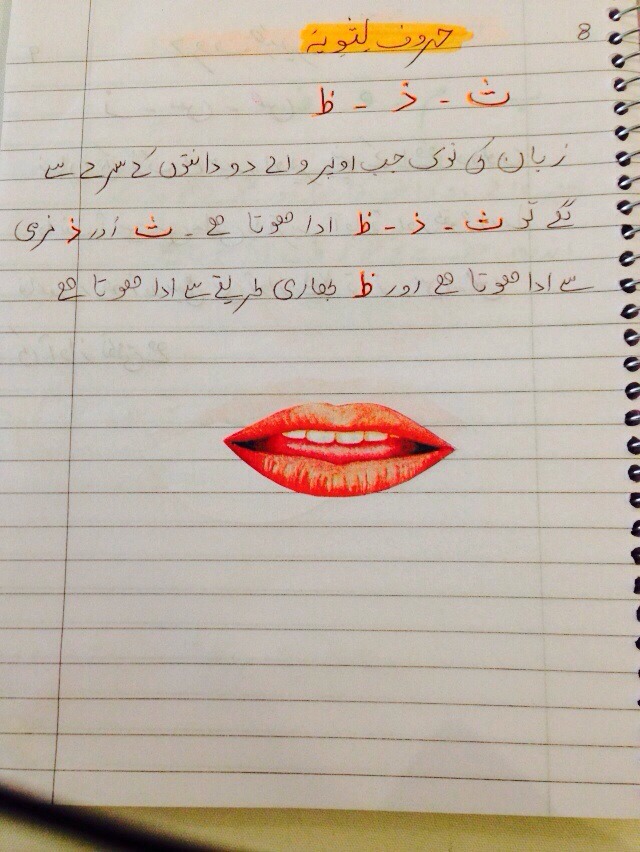 8
حروف لِثَوِیَہ
ث - ذ - ظ
زبان کی نوک جب اوپر والے دو دانتوں کے سرے سے
لگے تو ث - ذ - ظ ادا ھوتا ھے ۔ ث اور ذ نرمی
سے ادا ھوتا ھے اور ظ بھاری طریقے سے ادا ھوتا ھے